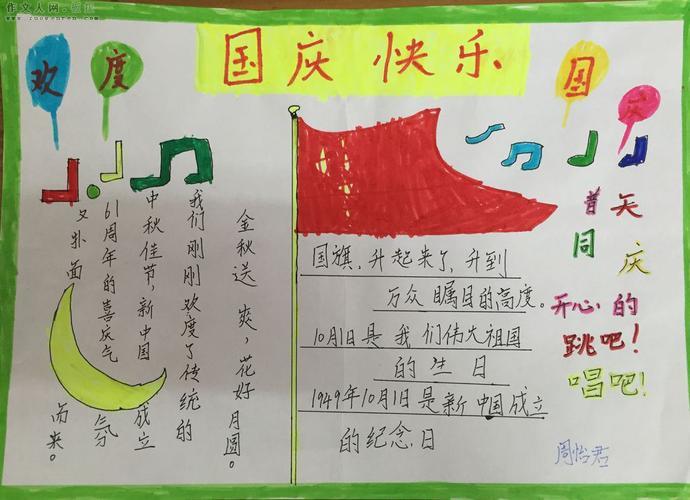 作文人网
欢度
国庆快乐
国庆
金秋送爽,花好月圆。
我们刚刚欢度了传统的
中秋佳节,新中国成立
61周年的喜庆气氛
又扑面而来。
国旗,升起来了,升到
万众瞩目的高度。
10月1日是我们伟大祖国
的生日
1949年10月1日是新中国成立
的纪念日
普天
同庆
开心的
跳吧!
唱吧!
周怡君